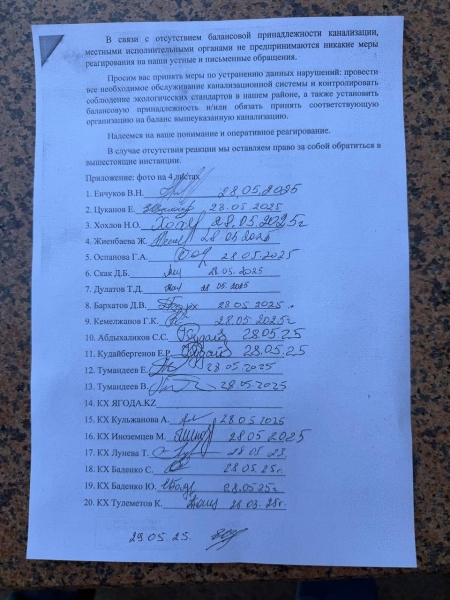 В связи с отсутствием балансовой принадлежности канализации,
местными исполнительными органами не предпринимаются никакие меры
реагирования на наши устные и письменные обращения.
Просим вас принять меры по устранению данных нарушений: провести
все необходимое обслуживание канализационной системы и контролировать
соблюдение экологических стандартов в нашем районе, а также установить
балансовую принадлежность и/или обязать принять соответствующую
организацию на баланс вышеуказанную канализацию.
Надеемся на ваше понимание и оперативное реагирование.
В случае отсутствия реакции мы оставляем право за собой обратиться в
вышестоящие инстанции.
Приложение: фото на 4 листах
1. Енчуков В.Н. 28.05.2025
2. Цуканов Е. 28.05.2025
3. Хохлов Н.О. 28.05.2025г
4. Жиенбаева Ж. 28.05.2025
5. Оспанова Г.А. 28.05.2025
6. Скак Д.Б. 28.05.2025
7. Дулатов Т.Д. 28.05.2025
8. Бархатов Д.В. 28.05.2025.
9. Кемелжанов Г.К. 28.05.2025г
10. Абдыхаликов С.С. 28.05.25
11. Кудайбергенов Е.Р. 28.05.25
12. Тумандеев Е. 28.05.2025
13. Тумандеев В. 28.05.2025
14. КХ ЯГОДА.KZ
15. КХ Кульжанова А. 28.05.2025
16. КХ Иноземцев М. 28.05.2025
17. КХ Лунева Т. 28.05
18. КХ Баденко С. 28.05.25г.
19. КХ Баденко Ю. 28.05.25г
20. КХ Тулеметов К.
29.05.25.